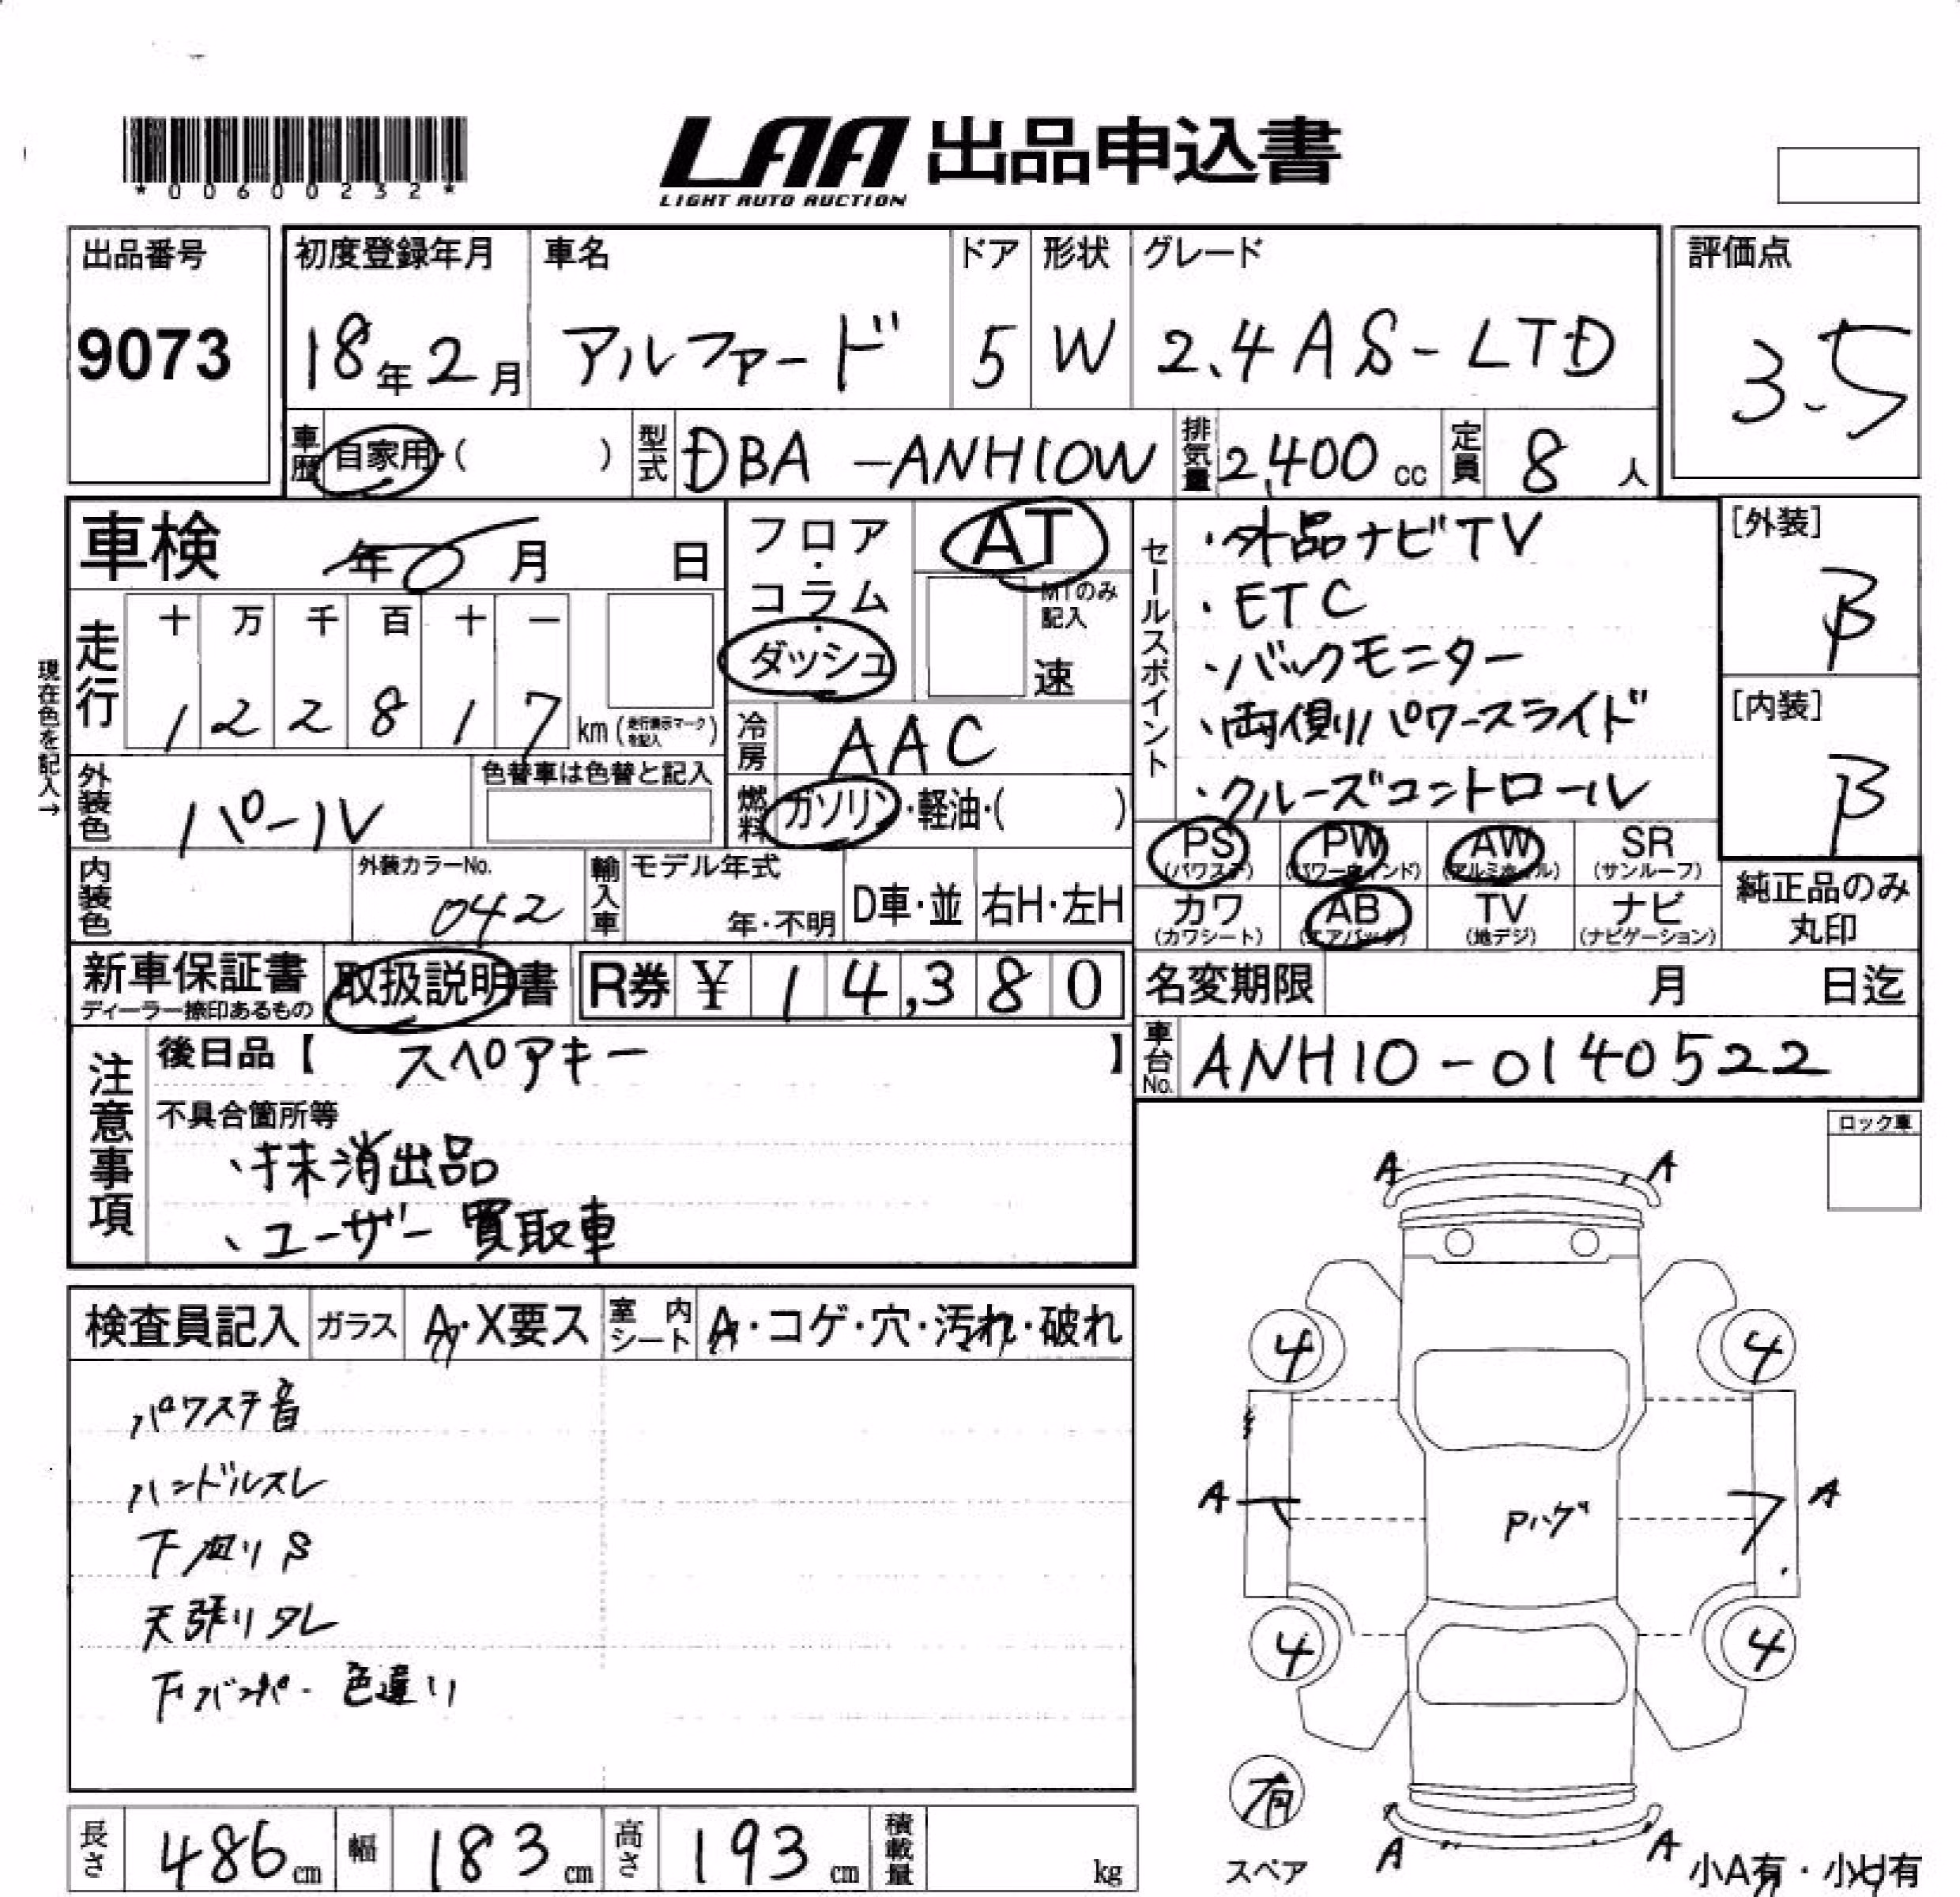 *00600232*
LAA 出品申込書
LIGHT AUTO AUCTION
出品番号 初度登録年月 車名 ドア 形状 グレード 評価点
9073 18年2月 アルファード 5 W 2.4 AS-LTD 3.5
車歴 自家用・( ) 型式 DBA-ANH10W 排気量 2,400cc 定員 8人
車検 年 月 日
フロア・コラム・ダッシュ
AT
MTのみ記入
速
セールスポイント
・外品ナビTV
・ETC
・バックモニター
・両側パワースライド
・クルーズコントロール
[外装]
B
[内装]
B
現在色を記入→
走行 十 万 千 百 十 一
1 2 2 8 1 7 km(走行表示マークを記入)
冷房 AAC
外装色 パール 色替車は色替と記入
燃料 ガソリン・軽油・( )
PS (パワステ) PW (パワーウインド) AW (アルミホイル) SR (サンルーフ)
カワ (カワシート) AB (エアバック) TV (地デジ) ナビ (ナビゲーション)
純正品のみ丸印
内装色 外装カラーNo. 042 輸入車 モデル年式 年・不明 D車・並 右H・左H
新車保証書 ディーラー捺印あるもの 取扱説明書 R券 ¥ 14,380
名変期限 月 日迄
車台No. ANH10-0140522
注意事項
後日品【 スペアキー 】
不具合箇所等
、抹消出品
、ユーザー買取車
ロック車
検査員記入 ガラス A・X要ス 室内シート A・コゲ・穴・汚れ・破れ
パワステ音
ハンドルスレ
下廻りS
天張りタレ
下バンパー 色違い
A A
4 4
A A
Pハゲ
4 4
有
スペア
A A
小A有・小U有
長さ 486cm 幅 183cm 高さ 193cm 積載量 kg